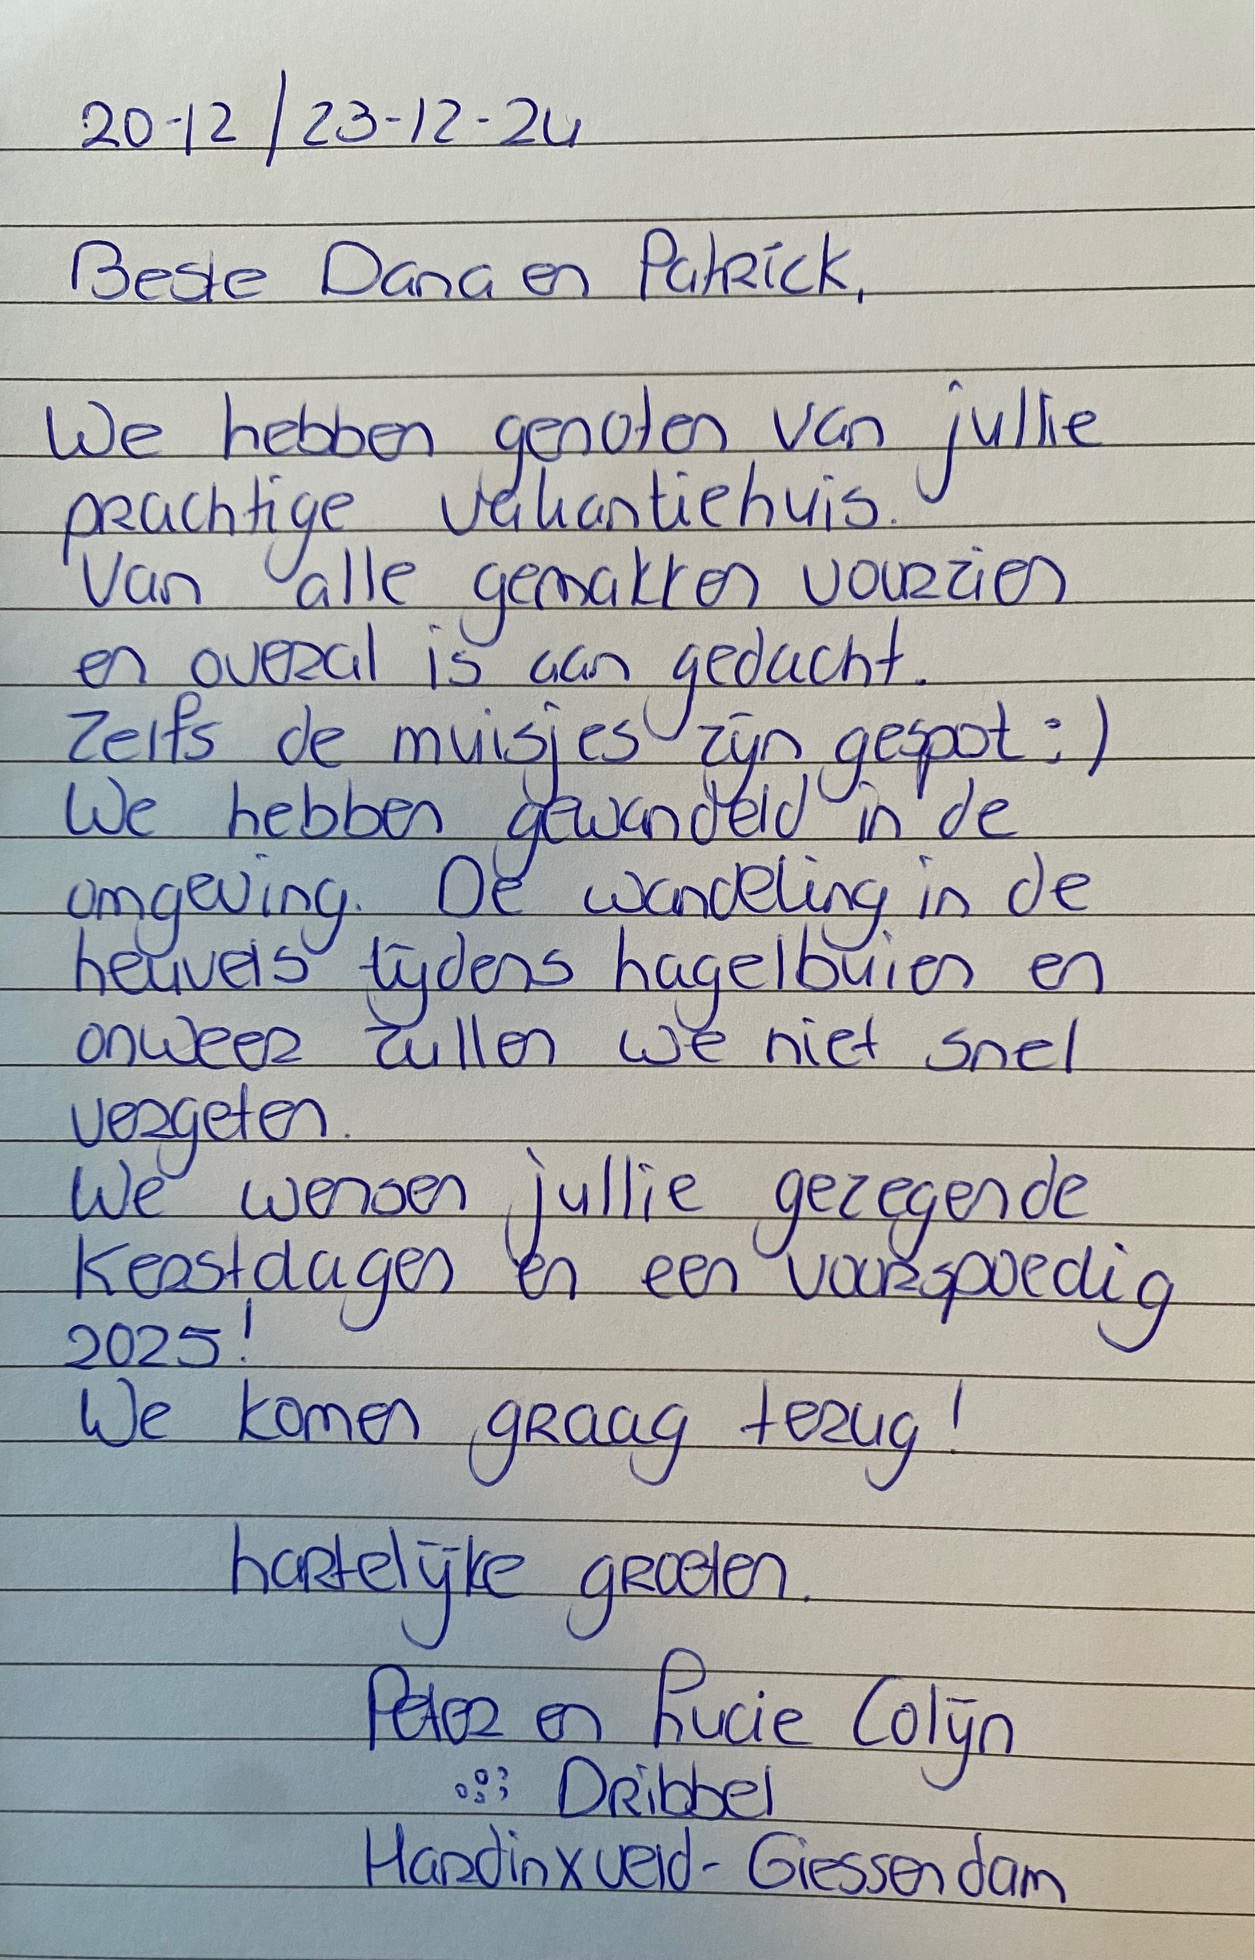 20-12 / 23-12-24
Beste Dana en Patrick,
We hebben genoten van jullie
prachtige vakantiehuis.
Van alle gemakken voorzien
en overal is aan gedacht.
Zelfs de muisjes zijn gespot :)
We hebben gewandeld in de
omgeving. De wandeling in de
heuvels tijdens hagelbuien en
onweer zullen we niet snel
vergeten.
We wensen jullie gezegende
Kerstdagen en een voorspoedig
2025!
We komen graag terug!
hartelijke groeten.
Peter en Lucie Colijn
Dribbel
Hardinxveld-Giessendam